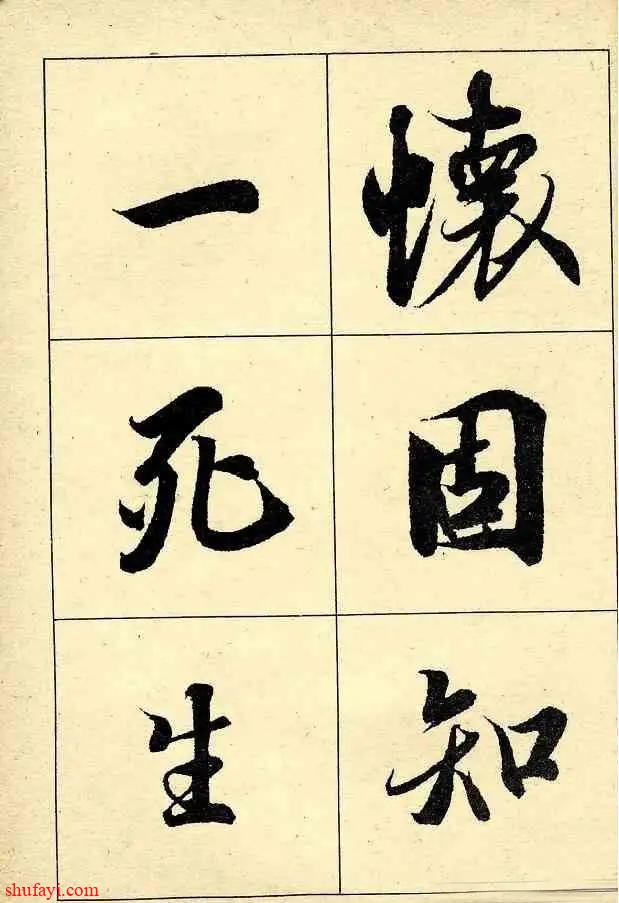 懷固知
一死生
shufayi.com